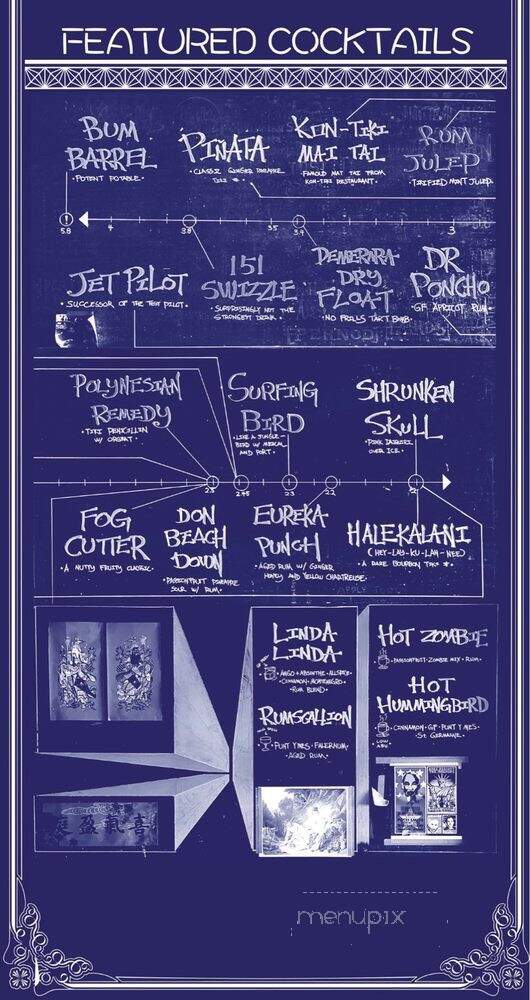 FEATURED COCKTAILS
BUM
BARREL
• POTENT POTABLE •
PIÑATA
• CLASSIC GINGER PINEAPPLE
TIKI * •
KON-TIKI
MAI TAI
• FAMOUS MAI TAI FROM
KON-TIKI RESTAURANT •
RUM
JULEP
• TIKIFIED MINT JULEP •
5.8
4
3.8
3.5
3.4
3
JET PILOT
• SUCCESSOR OF THE TEST PILOT •
151
SWIZZLE
• SURPRISINGLY NOT THE
STRONGEST DRINK •
DEMERARA
DRY
FLOAT
• NO FRILLS TART BOMB •
DR
PONCHO
• GF APRICOT RUM •
POLYNESIAN
REMEDY
• TIKI PENICILLIN
W/ ORGEAT •
SURFING
BIRD
• LIKE A JUNGLE
BIRD W/ MEZCAL
AND PORT •
SHRUNKEN
SKULL
• PINK DAIQUIRI
OVER ICE •
2.5
2.45
2.3
2.2
2
FOG
CUTTER
• A NUTTY FRUITY CLASSIC •
DON
BEACH
DOWN
• PASSIONFRUIT PINEAPPLE
SOUR W/ RUM •
EUREKA
PUNCH
• AGED RUM W/ GINGER
HONEY AND YELLOW CHARTREUSE •
HALEKALANI
(HEY-LAY-KU-LAH-NEE)
• A RARE BOURBON TIKI * •
LINDA
LINDA
• MANGO • ABSINTHE • ALLSPICE
• CINNAMON • MONTENEGRO •
• RUM BLEND •
RUMSCALLION
• PUNT Y MES • FALERNUM •
• AGED RUM •
HOT ZOMBIE
• PASSIONFRUIT • ZOMBIE MIX • RUM •
HOT
HUMMINGBIRD
• CINNAMON • GF • PUNT Y MES •
• ST. GERMAINE •
LOW
ABV
menupix